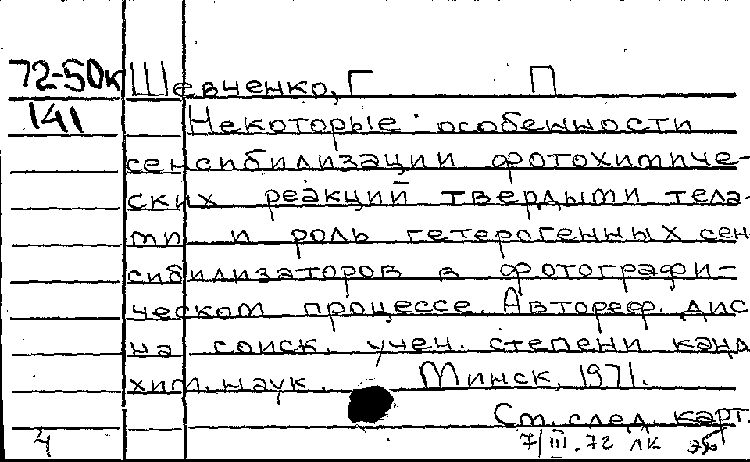 72-50к Шевченко, Г П
141 Некоторые особенности
сенсибилизации фотохимиче-
ских реакций твердыми тела-
ми и роль гетерогенных сен
сибилизаторов в фотографи-
ческом процессе. Автореф. дис
на соиск. учен. степени канд
хим. наук. Минск, 1971.
См. след. карт.
4 7/III.72 лк